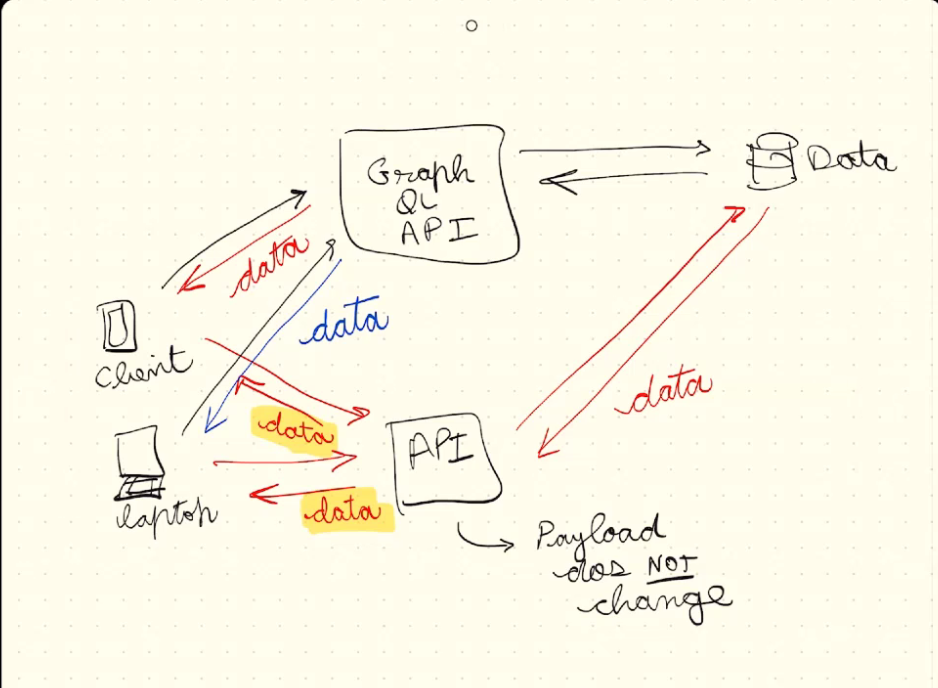 Graph
QL
API
Data
data
data
client
data
API
data
laptop
data
Payload
dos NOT
change